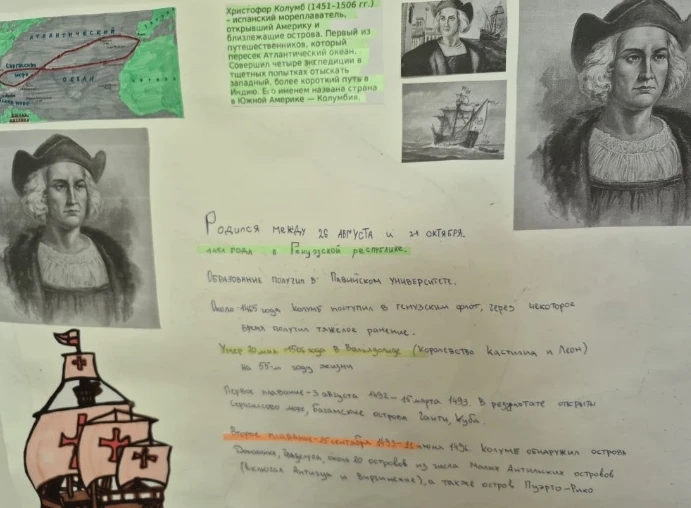 АТЛАНТИЧЕСКИЙ
ОКЕАН
Саргассово
море
Христофор Колумб (1451–1506 гг.)
– испанский мореплаватель,
открывший Америку и
близлежащие острова. Первый из
путешественников, который
пересек Атлантический океан.
Совершил четыре экспедиции в
тщетных попытках отыскать
западный, более короткий путь в
Индию. Его именем названа страна
в Южной Америке — Колумбия.
Родился между 26 августа и 31 октября
1451 года в Генуэзской республике.
Образование получил в Павийском университете.
Около 1465 года Колумб поступил в генуэзский флот, через некоторое
время получил тяжелое ранение.
Умер 20 мая 1506 года в Вальядолиде (Королевство Кастилия и Леон)
на 55-м году жизни
Первое плавание - 3 августа 1492 - 15 марта 1493. В результате открыты
Саргассово море, Багамские острова Гаити, Куба.
Второе плавание - 25 сентября 1493 - 11 июня 1496 Колумб обнаружил острова
Доминика, Гваделупа, около 20 островов из числа Малых Антильских островов
(включая Антигуа и Виргинские), а также остров Пуэрто-Рико